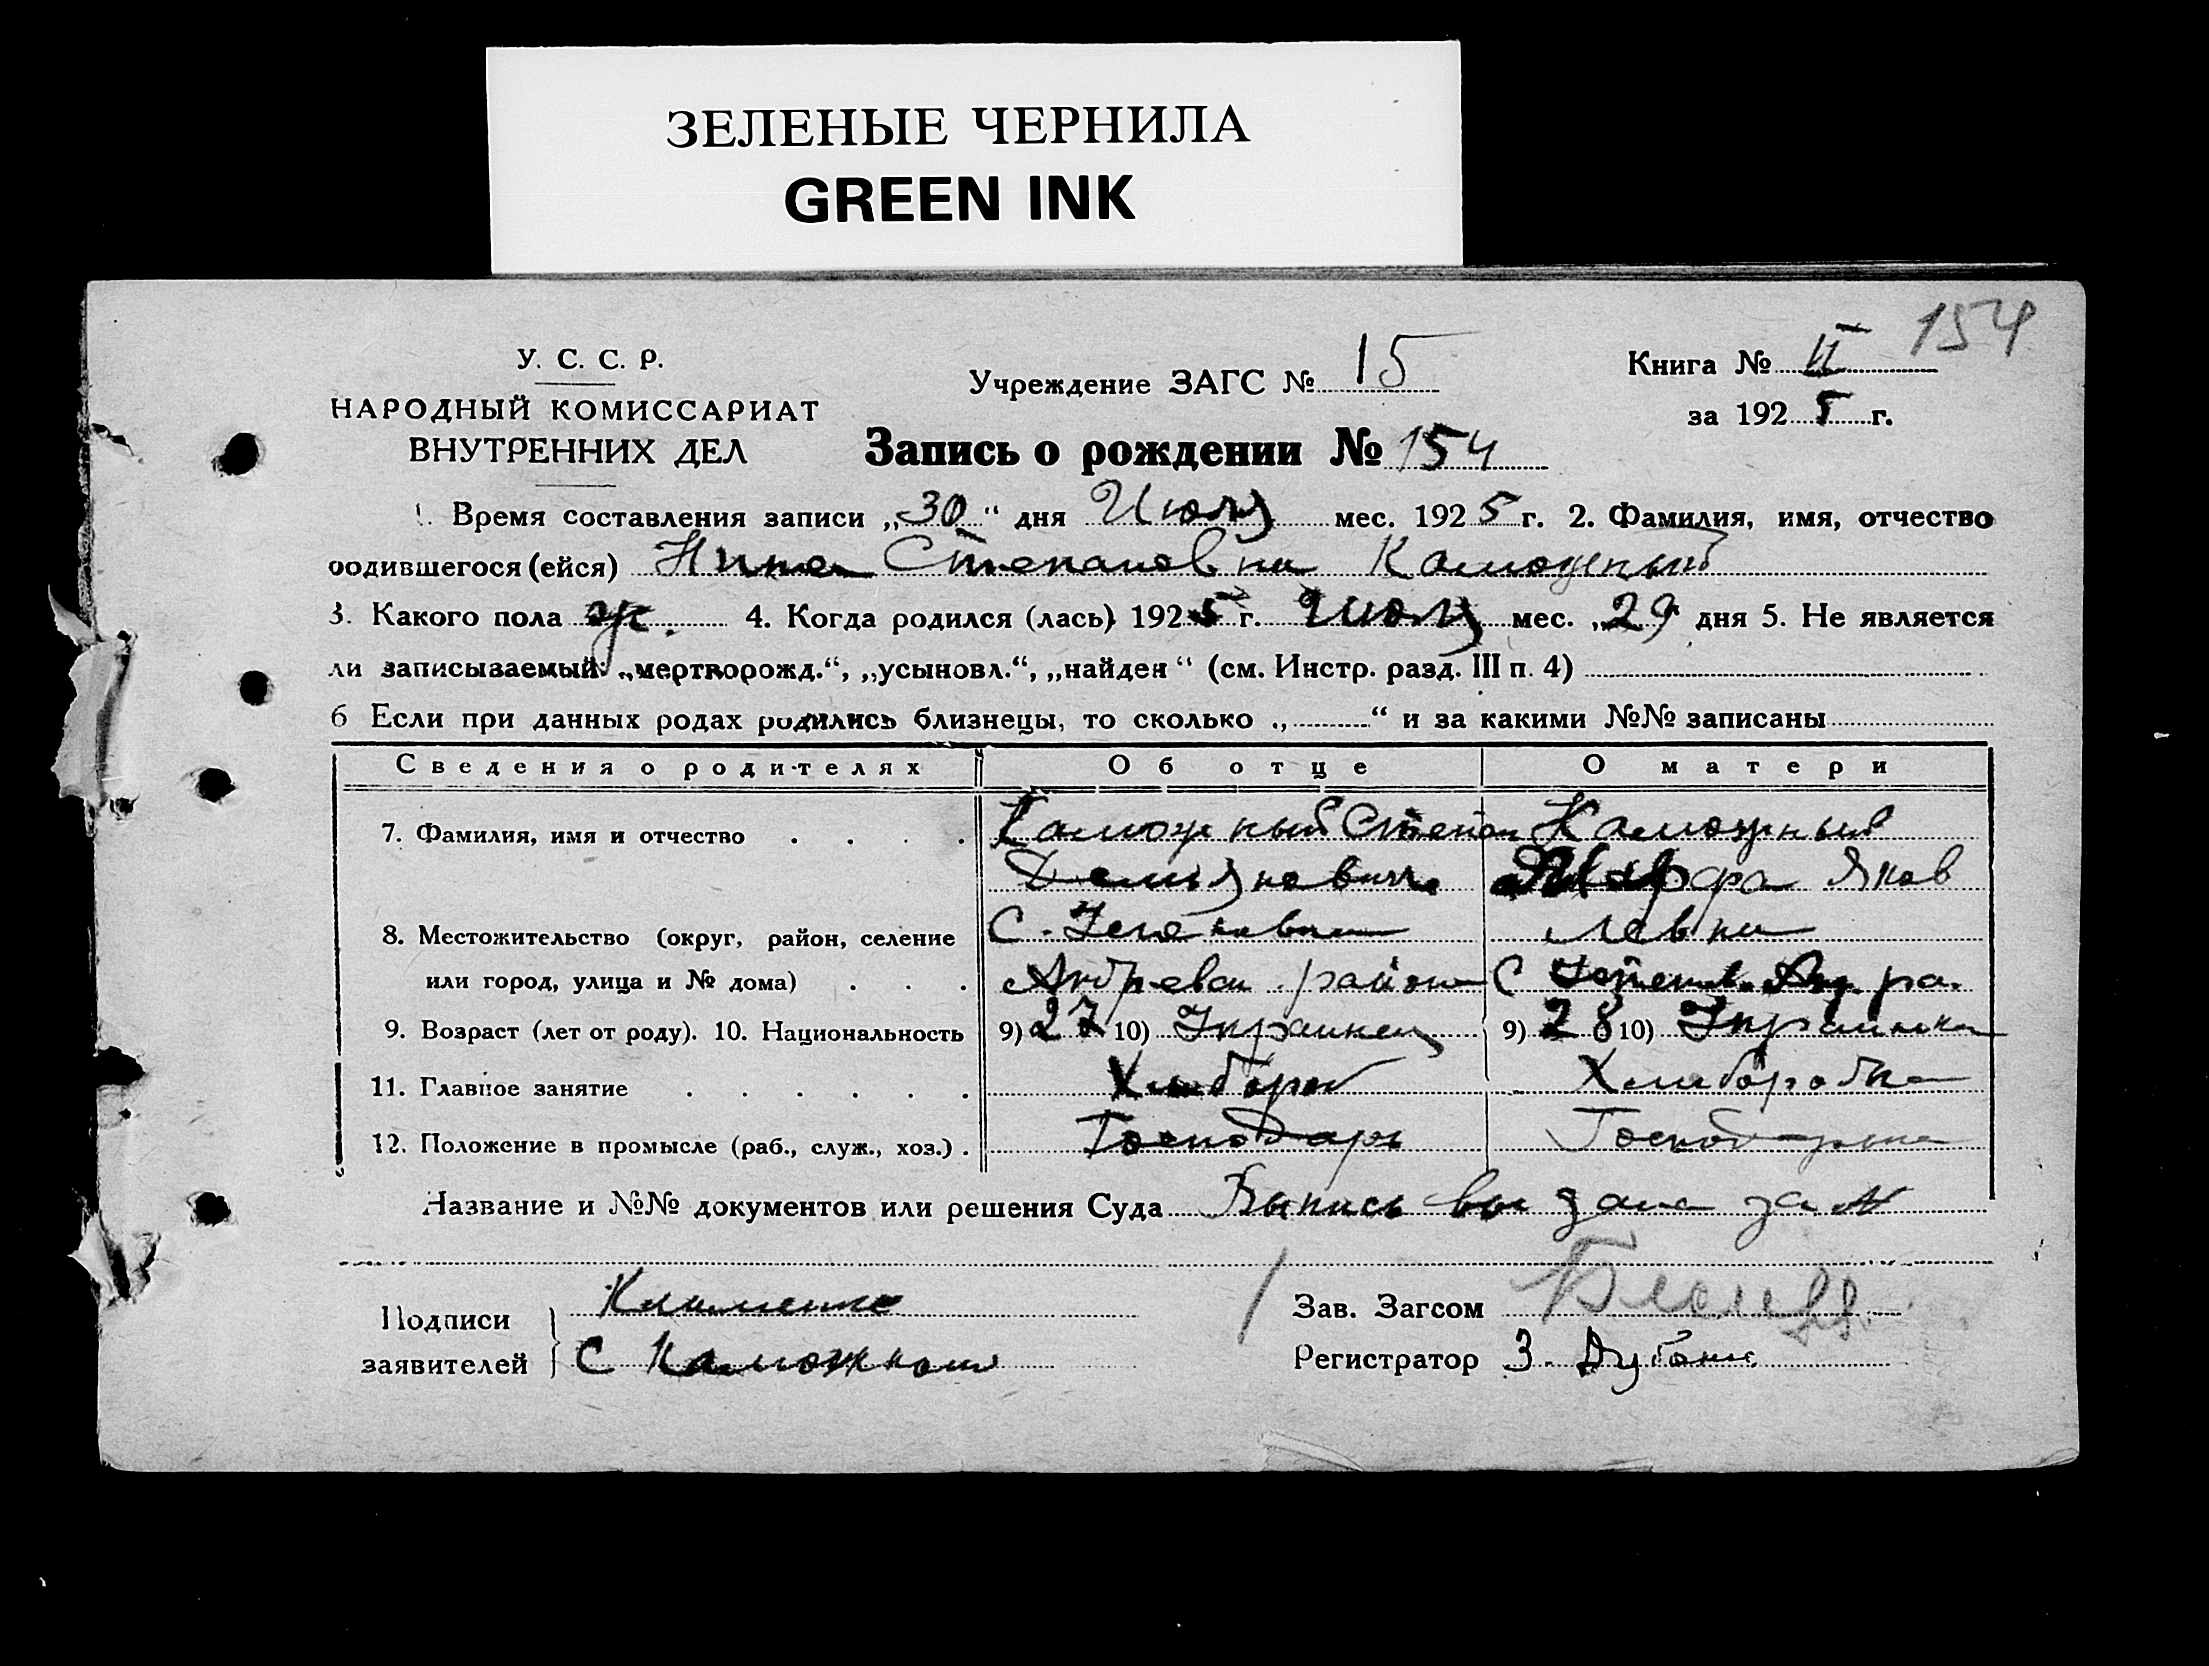 ЗЕЛЕНЫЕ ЧЕРНИЛА
GREEN INK
154
У. С. С. Р.
НАРОДНЫЙ КОМИССАРИАТ
ВНУТРЕННИХ ДЕЛ
Учреждение ЗАГС № 15
Книга № II
за 1925 г.
Запись о рождении № 154
1. Время составления записи „30“ дня Июля мес. 1925 г. 2. Фамилия, имя, отчество
родившегося (ейся) Нина Степановна Каможный
3. Какого пола ж. 4. Когда родился (лась) 1925 г. Июля мес. „29“ дня 5. Не является
ли записываемый: „мертворожд.“, „усыновл.“, „найден“ (см. Инстр. разд. III п. 4)
6 Если при данных родах родились близнецы, то сколько „ “ и за какими №№ записаны
Сведения о родителях Об отце О матери
7. Фамилия, имя и отчество Каможный Степан Каможный
Демьянович Марфа Яков
левна
8. Местожительство (округ, район, селение С.
или город, улица и № дома) район С
9. Возраст (лет от роду). 10. Национальность 9) 27 10) Украинец 9) 28 10) Украинка
11. Главное занятие Хлибороб Хлиборобка
12. Положение в промысле (раб., служ., хоз.) Господарь Господарка
Название и №№ документов или решения Суда Выпись выдана за №
Подписи заявителей Клименко
С Каможном
Зав. Загсом
Регистратор З.